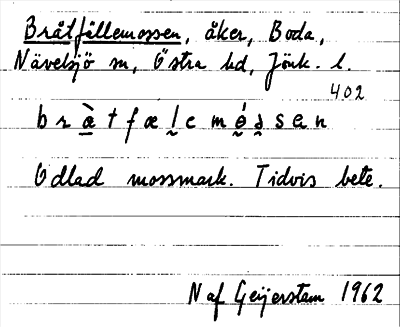 Bråtfällemossen, åker, Boda,
Nävelsjö sn, Östra hd, Jönk. l.
402
bràtfælemóssen
Odlad mossmark. Tidvis bete.
N af Geijerstam 1962